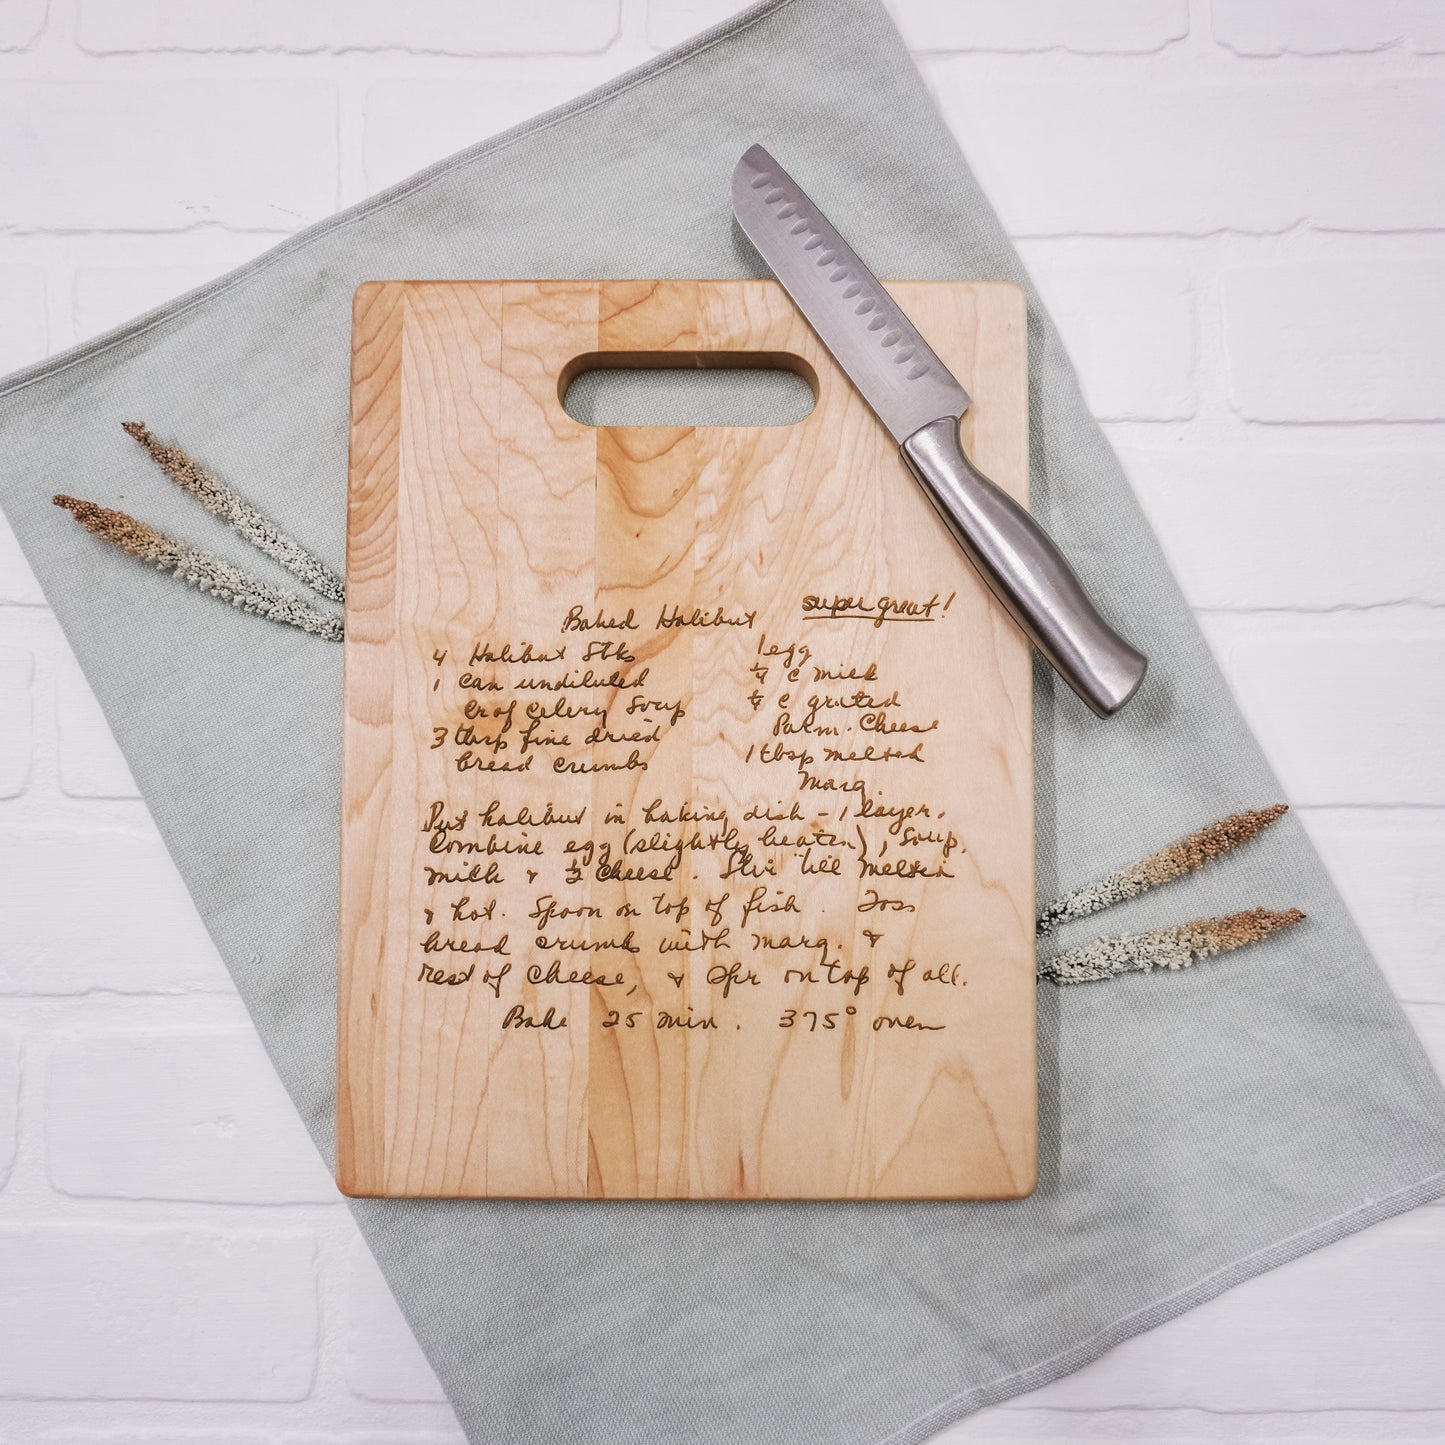 Baked Halibut super great!
4 Halibut Stks
1 can undiluted
Cr of Celery Soup
3 tbsp fine dried
bread crumbs
1 egg
¼ c milk
¼ c grated
Parm. Cheese
1 tbsp melted
Marg.
Put halibut in baking dish - 1 layer.
Combine egg (slightly beaten), soup,
milk & ½ cheese. Stir till melted
& hot. Spoon on top of fish. Toss
bread crumbs with marg. &
rest of cheese, & spr on top of all.
Bake 25 min. 375° oven